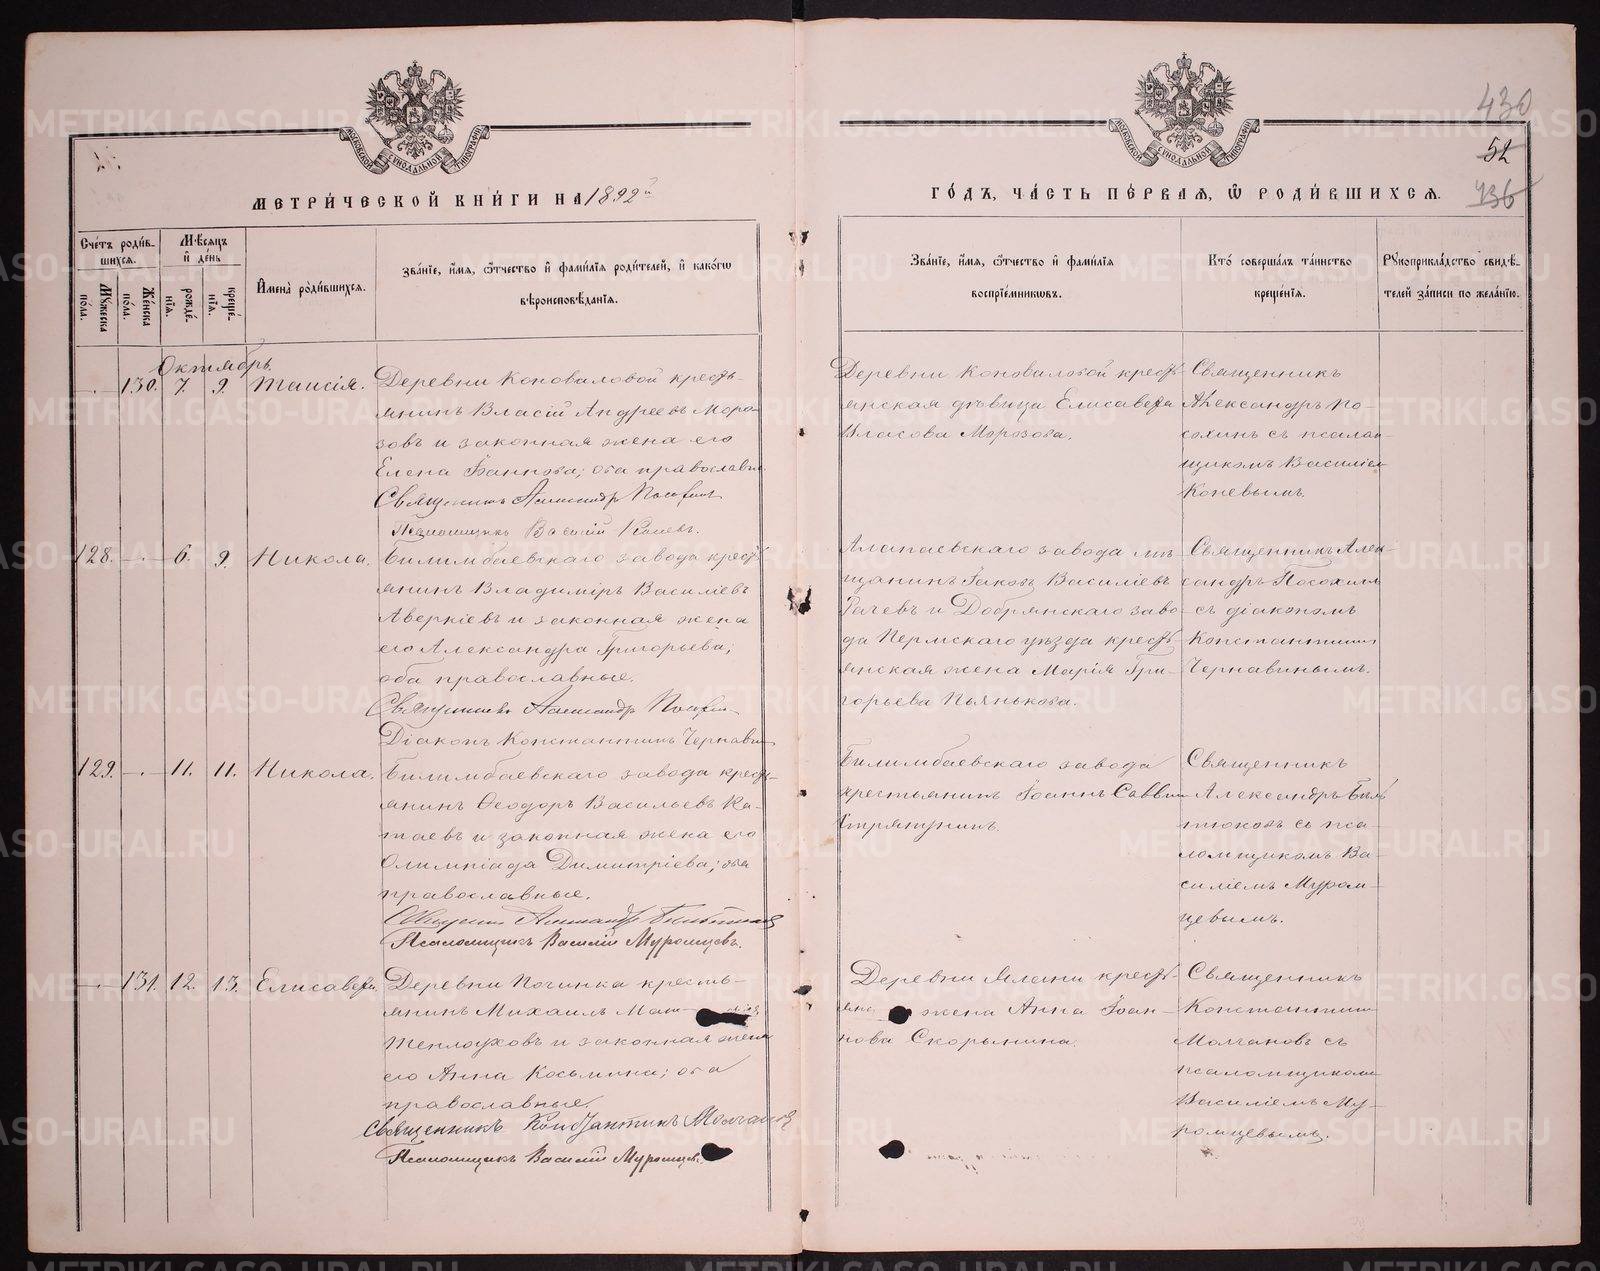 430
52
436
МЕТРИ́ЧЕСКОЙ КНИ́ГИ НА 1892й
ГО́ДЪ, ЧА́СТЬ ПЕ́РВАЯ, Ѿ РОДИ́ВШИХСЯ.
Сче́тъ роди́в-
шихся.
Мꙋ́жеска
по́ла.
Же́нска
по́ла.
Мѣ́сяцъ
и҆ де́нь
рожде́-
нїѧ.
креще́-
нїѧ.
И҆мена̀ роди́вшихсѧ.
Зва́нїе, и҆́мѧ, ѻ҆́тчество и҆ фами́лїѧ роди́телей, и҆ како́гѡ
вѣроисповѣ́данїѧ.
Зва́нїе, и҆́мѧ, ѻ҆́тчество и҆ фами́лїѧ
воспрїе́мникѡвъ.
Кто̀ соверша́лъ та́инство
креще́нїѧ.
Рꙋкоприкла́дство свидѣ́-
телей за́писи по жела́нїю.
Октябрь.
130. 7. 9. Таисія.
Деревни Коноваловой кресть-
янинъ Власій Андреевъ Моро-
зовъ и законная жена его
Елена Іаннова; оба православн.
Священникъ Александр Посохин
Псаломщикъ Василій Коневъ.
Деревни Коноваловой кресть-
янская дѣвица Елисавета
Власова Морозова.
Священникъ
Александръ По-
сохинъ съ псалом-
щикомъ Василіем
Коневымъ.
128. 6. 9. Никола.
Билимбаевскаго завода крест-
янинъ Владиміръ Василіевъ
Аверкіевъ и законная жена
его Александра Григорьева;
оба православные.
Священникъ Александр Посохин
Діаконъ Константинъ Чернавин
Алапаевскаго завода мѣ-
щанинъ Іаковъ Василіевъ
Гачевъ и Добрянскаго заво-
да Пермскаго уѣзда кресть-
янская жена Марія Гри-
горьева Пьянькова.
Священникъ Алек-
сандръ Посохинъ
съ діакономъ
Константином
Чернавинымъ.
129. 11. 11. Никола.
Билимбаевскаго завода кресть-
янинъ Ѳеодоръ Васильевъ Ка-
таевъ и законная жена его
Олимпіада Димитріева; оба
православные.
Священник Александр
Псаломщикъ Василій Муромцевъ.
Билимбаевскаго завода
крестьянинъ Іоаннъ Саввин
Стряпунинъ.
Священникъ
Александръ
съ пса-
ломщикомъ Ва-
силіемъ Муром-
цевымъ.
131. 12. 13. Елисавета.
Деревни Починка кресть-
янинъ Михаилъ
Теплоуховъ и законная жена
его Анна Косьмина; оба
православные.
Священникъ Константинъ Молчановъ
Псаломщикъ Василій Муромцевъ
Деревни Ялани кресть-
янс жена Анна Іоан-
нова Скорынина.
Священникъ
Константин
Молчановъ съ
псаломщикомъ
Василіемъ Му-
ромцевымъ.